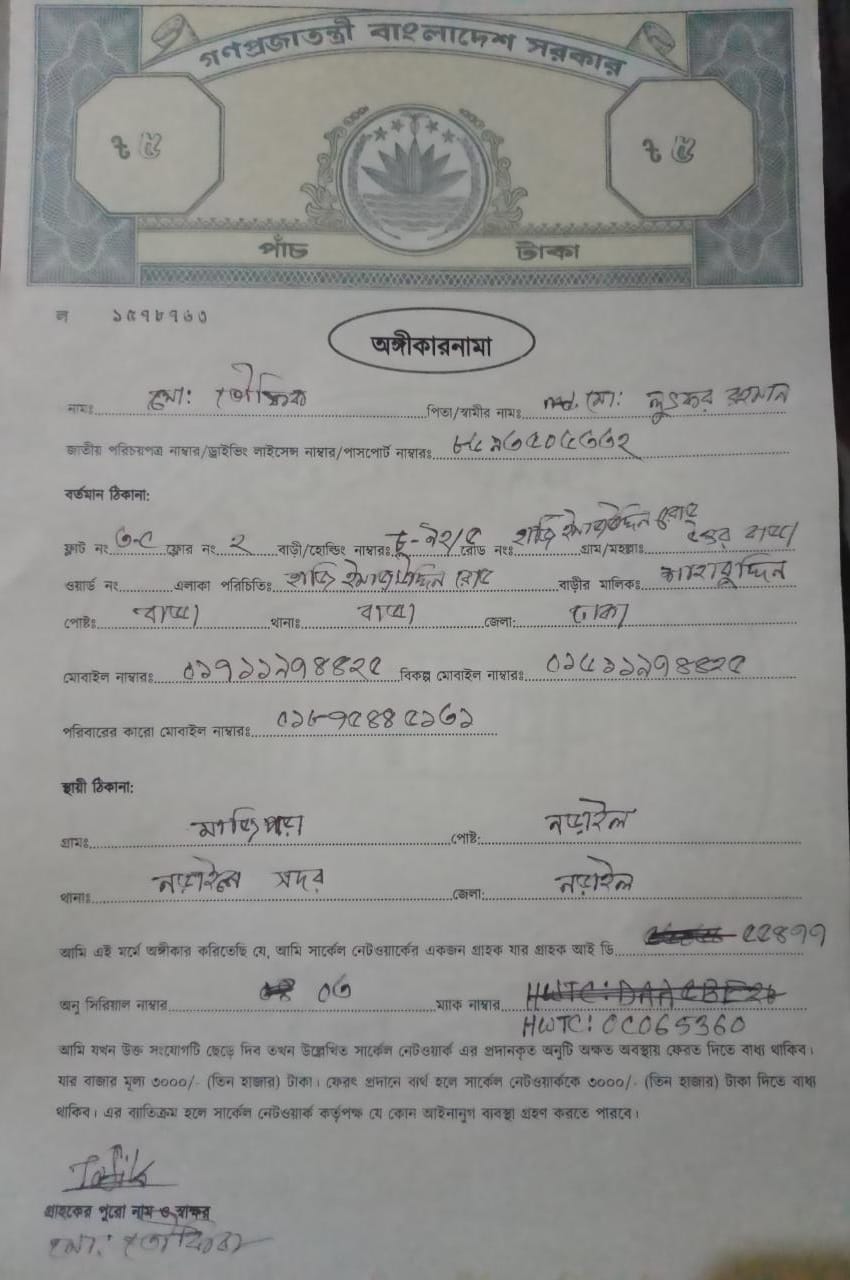 গণপ্রজাতন্ত্রী বাংলাদেশ সরকার
৳ ৫ ৳ ৫
পাঁচ টাকা
ল ১৫৭৮৭৬৩
অঙ্গীকারনামা
নামঃ মো: তৌফিক পিতা/স্বামীর নামঃ মো: লুৎফর রহমান
জাতীয় পরিচয়পত্র নাম্বার/ড্রাইভিং লাইসেন্স নাম্বার/পাসপোর্ট নাম্বারঃ
বর্তমান ঠিকানা:
ফ্লাট নং ফ্লোর নং ২ বাড়ী/হোল্ডিং নাম্বারঃ রোড নংঃ গ্রাম/মহল্লাঃ উত্তর বাড্ডা
ওয়ার্ড নং এলাকা পরিচিতিঃ বাড়ীর মালিকঃ
পোষ্টঃ বাড্ডা থানাঃ বাড্ডা জেলা: ঢাকা
মোবাইল নাম্বারঃ ০১৭১১৯৭৪৪২৫ বিকল্প মোবাইল নাম্বারঃ ০১৫১১৯৭৪৪২৫
পরিবারের কারো মোবাইল নাম্বারঃ
স্থায়ী ঠিকানা:
গ্রামঃ পোষ্ট: নড়াইল
থানাঃ নড়াইল সদর জেলা: নড়াইল
আমি এই মর্মে অঙ্গীকার করিতেছি যে, আমি সার্কেল নেটওয়ার্কের একজন গ্রাহক যার গ্রাহক আই ডি
অনু সিরিয়াল নাম্বার ০৩ ম্যাক নাম্বার
HWTC: 0C065360
আমি যখন উক্ত সংযোগটি ছেড়ে দিব তখন উল্লেখিত সার্কেল নেটওয়ার্ক এর প্রদানকৃত অনুটি অক্ষত অবস্থায় ফেরত দিতে বাধ্য থাকিব।
যার বাজার মূল্য ৩০০০/- (তিন হাজার) টাকা। ফেরৎ প্রদানে ব্যর্থ হলে সার্কেল নেটওয়ার্ককে ৩০০০/- (তিন হাজার) টাকা দিতে বাধ্য
থাকিব। এর ব্যতিক্রম হলে সার্কেল নেটওয়ার্ক কর্তৃপক্ষ যে কোন আইনানুগ ব্যবস্থা গ্রহণ করতে পারবে।
Tofik
গ্রাহকের পুরো নাম ও স্বাক্ষর
মো: তৌফিক